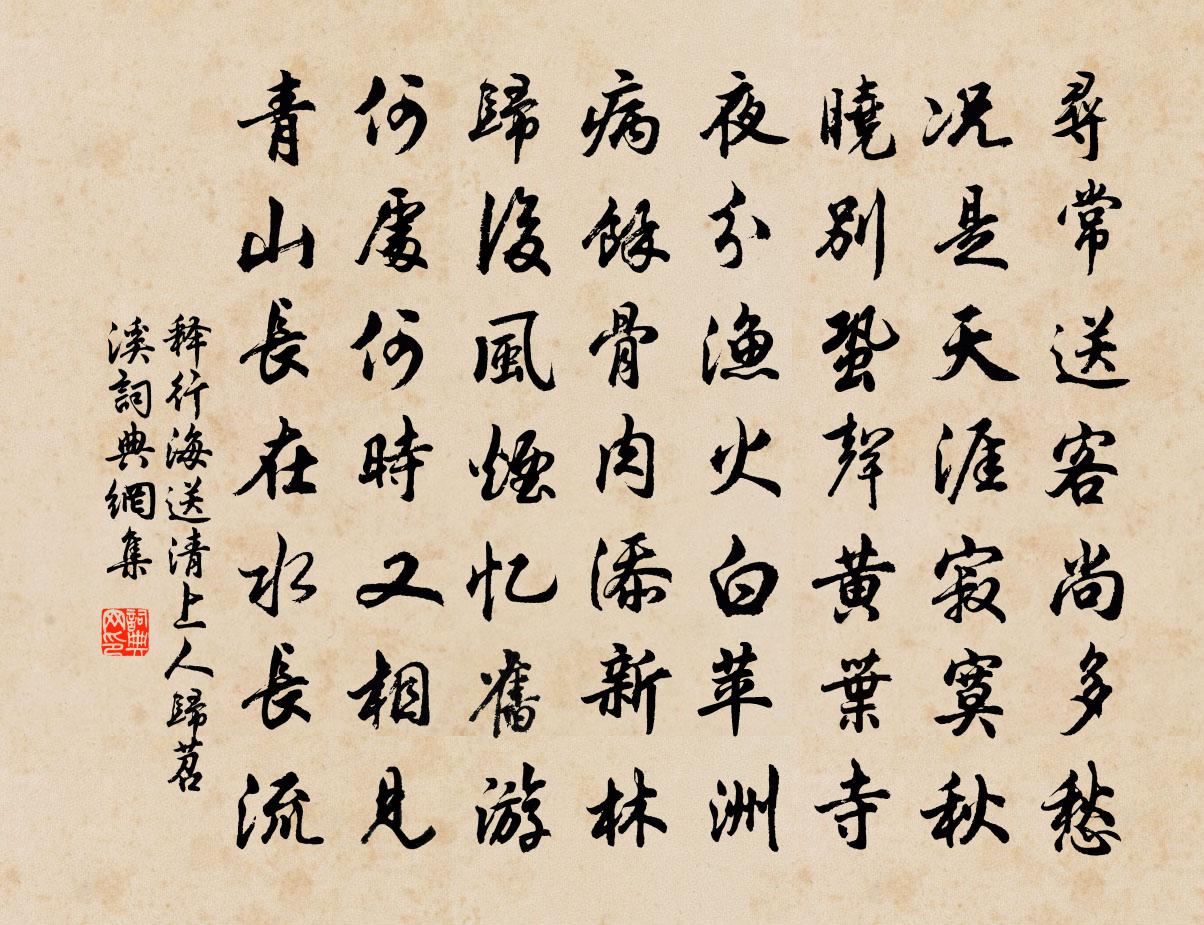 尋常送客尚多愁
况是天涯寂寞秋
曉别蛩聲黄葉寺
夜分漁火白苹洲
病餘骨肉添新林
歸後風煙忆舊游
何處何時又相見
青山長在水長流
释行海送清上人歸苕
溪詞典網集
詞典网印